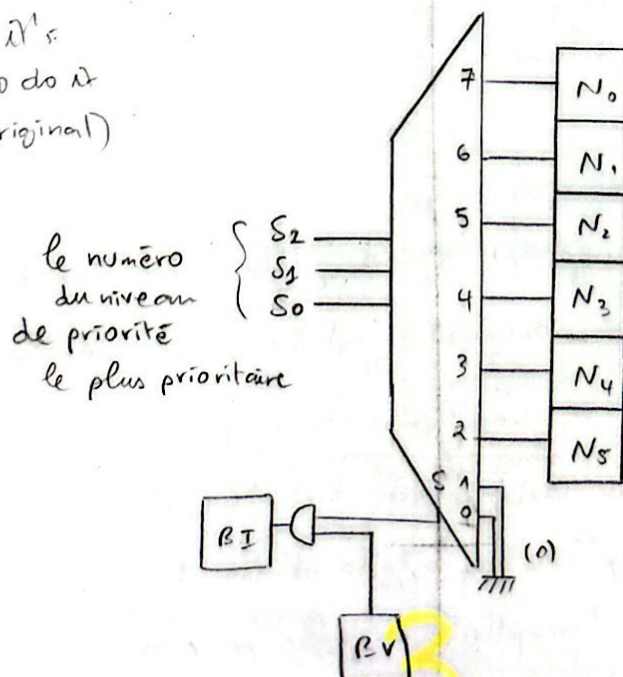 do
riginal)
le numéro
du niveau
de priorité
le plus prioritaire
S2
S1
S0
7
6
5
4
3
2
S 1
0
N0
N1
N2
N3
N4
N5
(0)
BI
BV